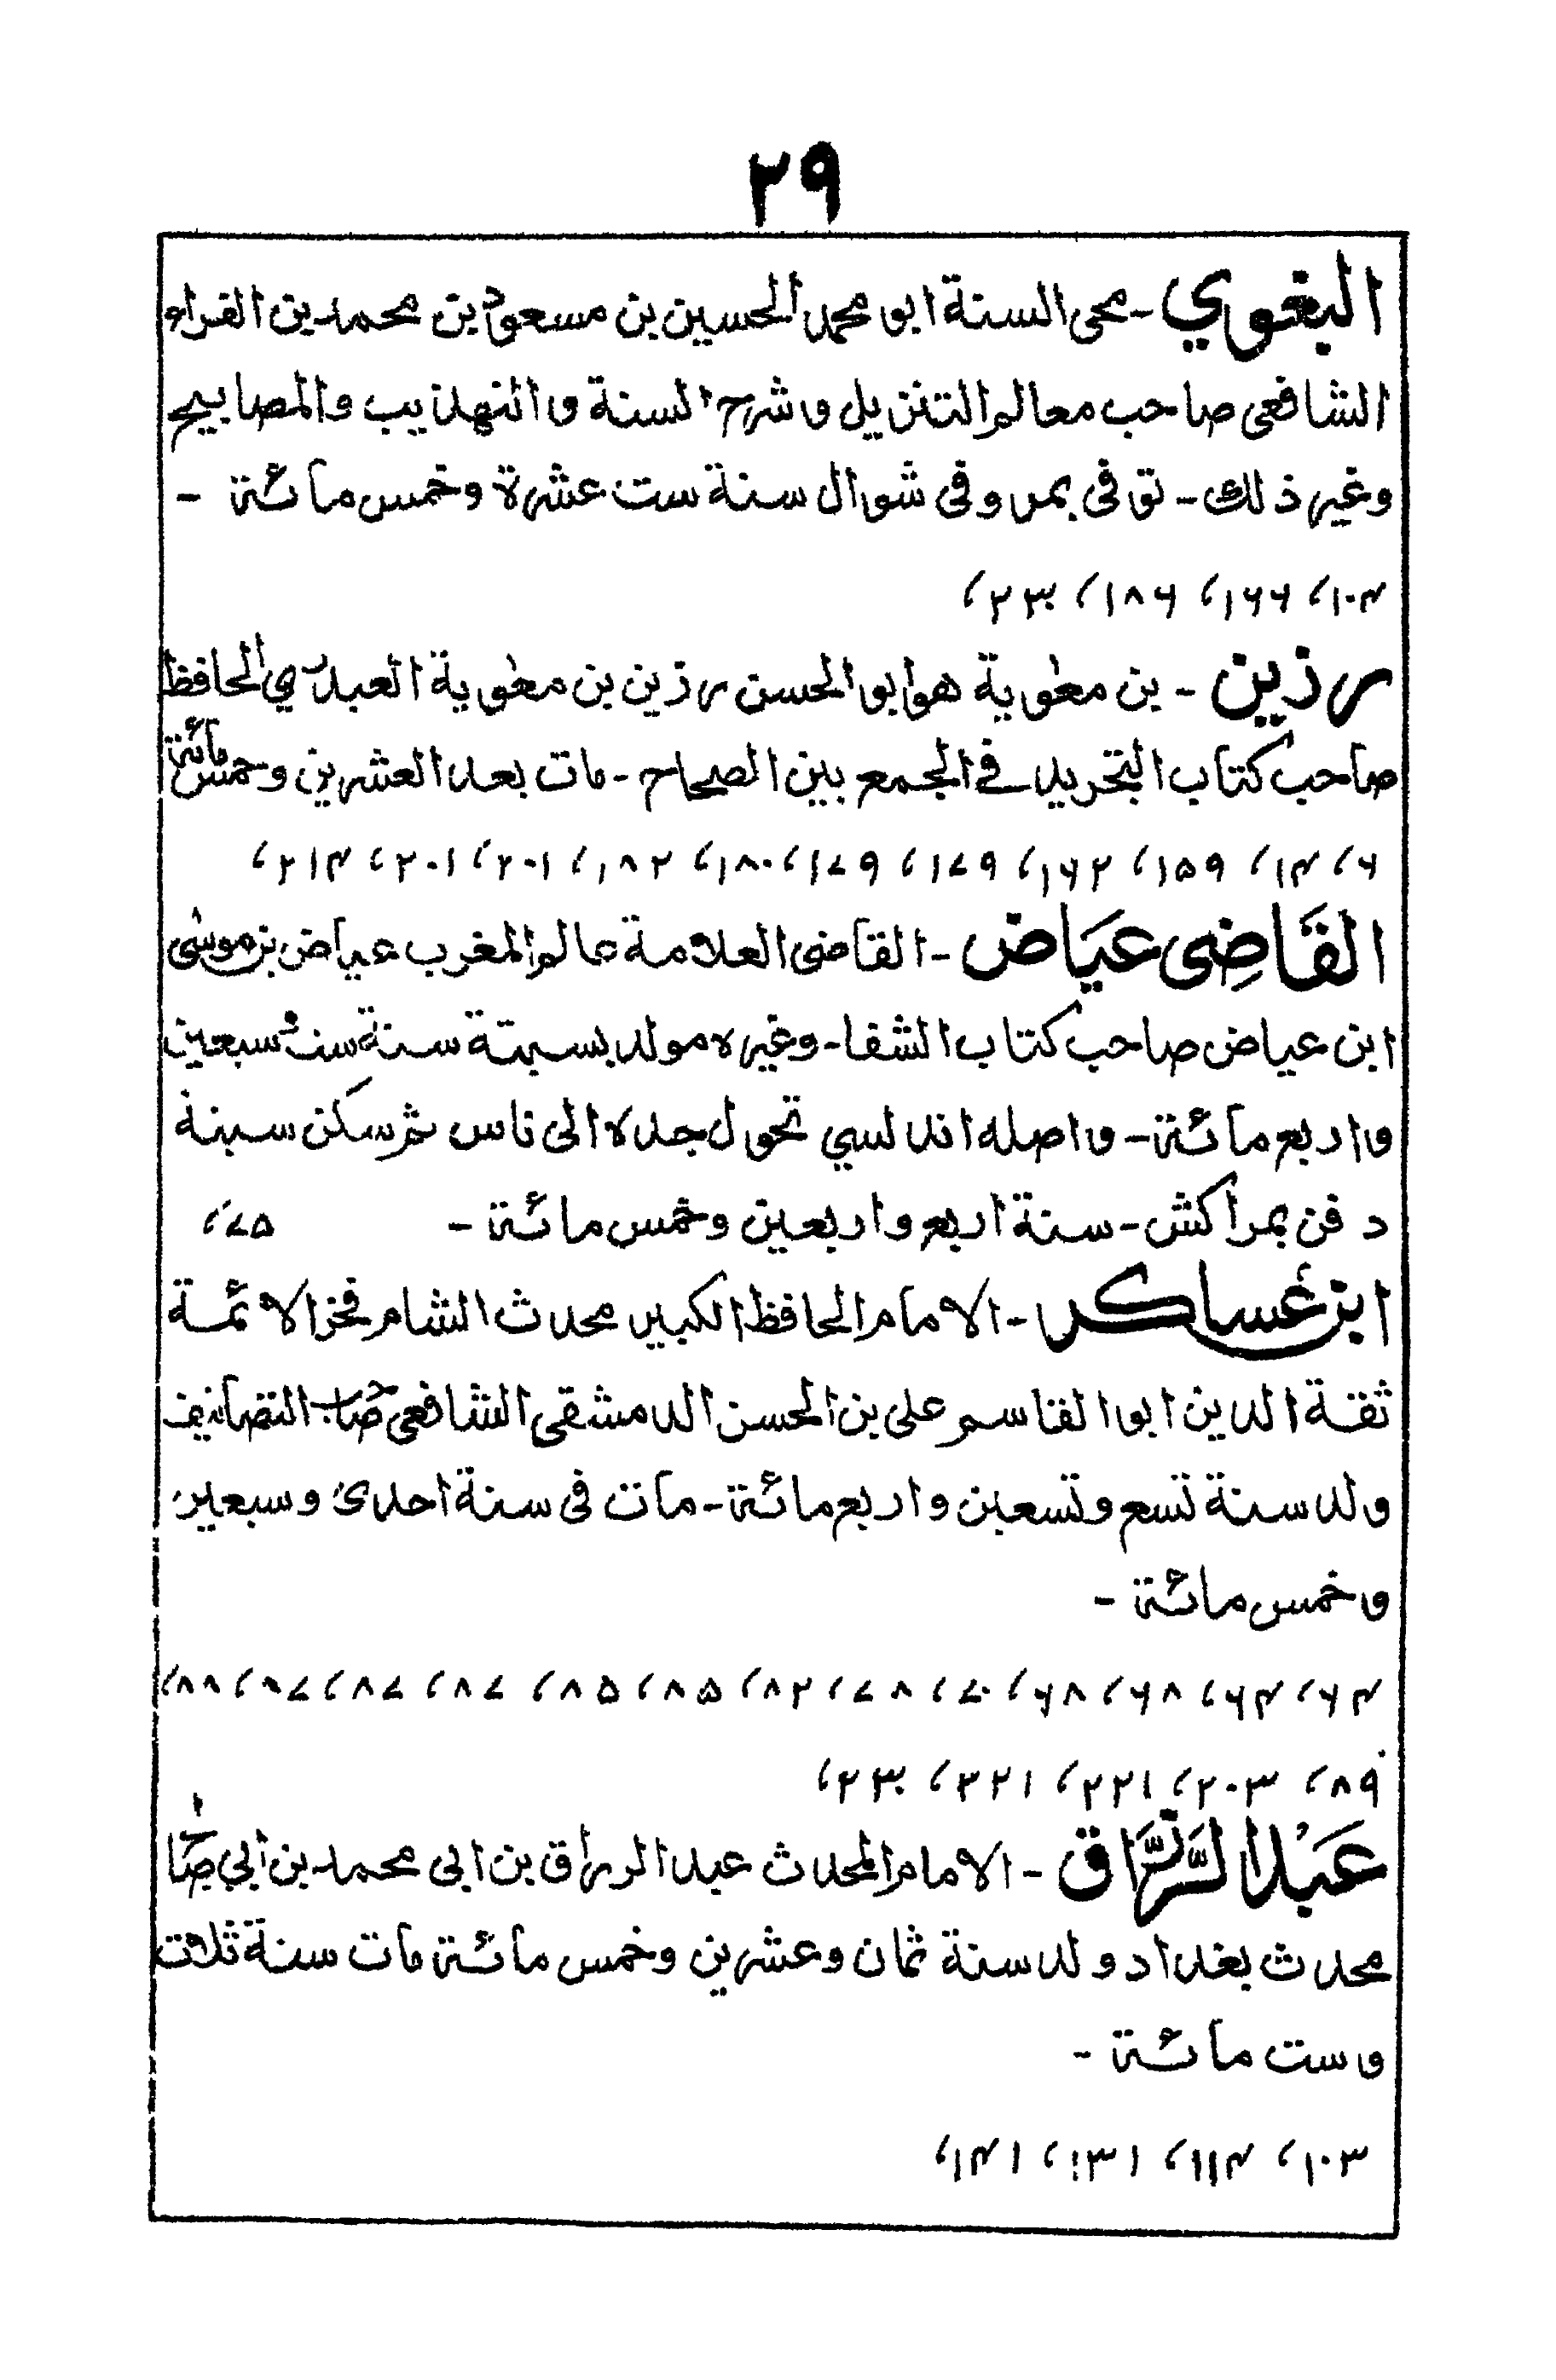 ۲۹
البغوي - محى السنة ابو محمد الحسين بن مسعود بن محمد بن الفراء
الشافعى صاحب معالم التنزيل و شرح السنة و التهذيب والمصابيح
وغير ذلك - توفى بمرو فى شوال سنة ست عشرة وخمس مائة -
۱۰۴، ۱۶۶، ۱۸۶، ۲۳۰،
رزين - بن معٰوية هو ابو الحسن رزين بن معٰوية العبدري الحافظ
صاحب كتاب التجريد فے الجمع بين الصحاح - مات بعد العشرين وخمس مائة
۶، ۱۴، ۱۵۹، ۱۶۲، ۱۷۹، ۱۷۹، ۱۸۰، ۱۸۲، ۲۰۱، ۲۰۱، ۲۱۴،
القَاضِى عيَاض - القاضى العلامة عالم المغرب عياض بن موسٰى
ابن عياض صاحب كتاب الشفا - وغيره مولد بسبتة سنة ست و سبعين
و اربع مائة - و اصله اندلسي تحول جده الى ناس ثم سكن سبتة
دفن بمراكش - سنة اربع و اربعين وخمس مائة - ۷۵،
ابن عساكر - الامام الحافظ الكبير محدث الشام فخر الائمة
ثقة الدين ابو القاسم على بن الحسن الدمشقى الشافعى صاحب التصانيف
ولد سنة تسع وتسعين و اربع مائة - مات فى سنة احدى وسبعين
و خمس مائة -
۶۴، ۶۴، ۶۸، ۶۸، ۷۰، ۷۸، ۸۲، ۸۵، ۸۵، ۸۷، ۸۷، ۷۹، ۸۸،
۸۹، ۲۰۳، ۲۲۱، ۲۲۱، ۲۳۰،
عَبْد الرَّزَّاق - الامام المحدث عبد الرزاق بن ابى محمد بن ابي صالح
محدث بغداد ولد سنة ثمان وعشرين وخمس مائة مات سنة ثلاث
و ست مائة -
۱۰۳، ۱۱۴، ۱۳۱، ۱۴۱،